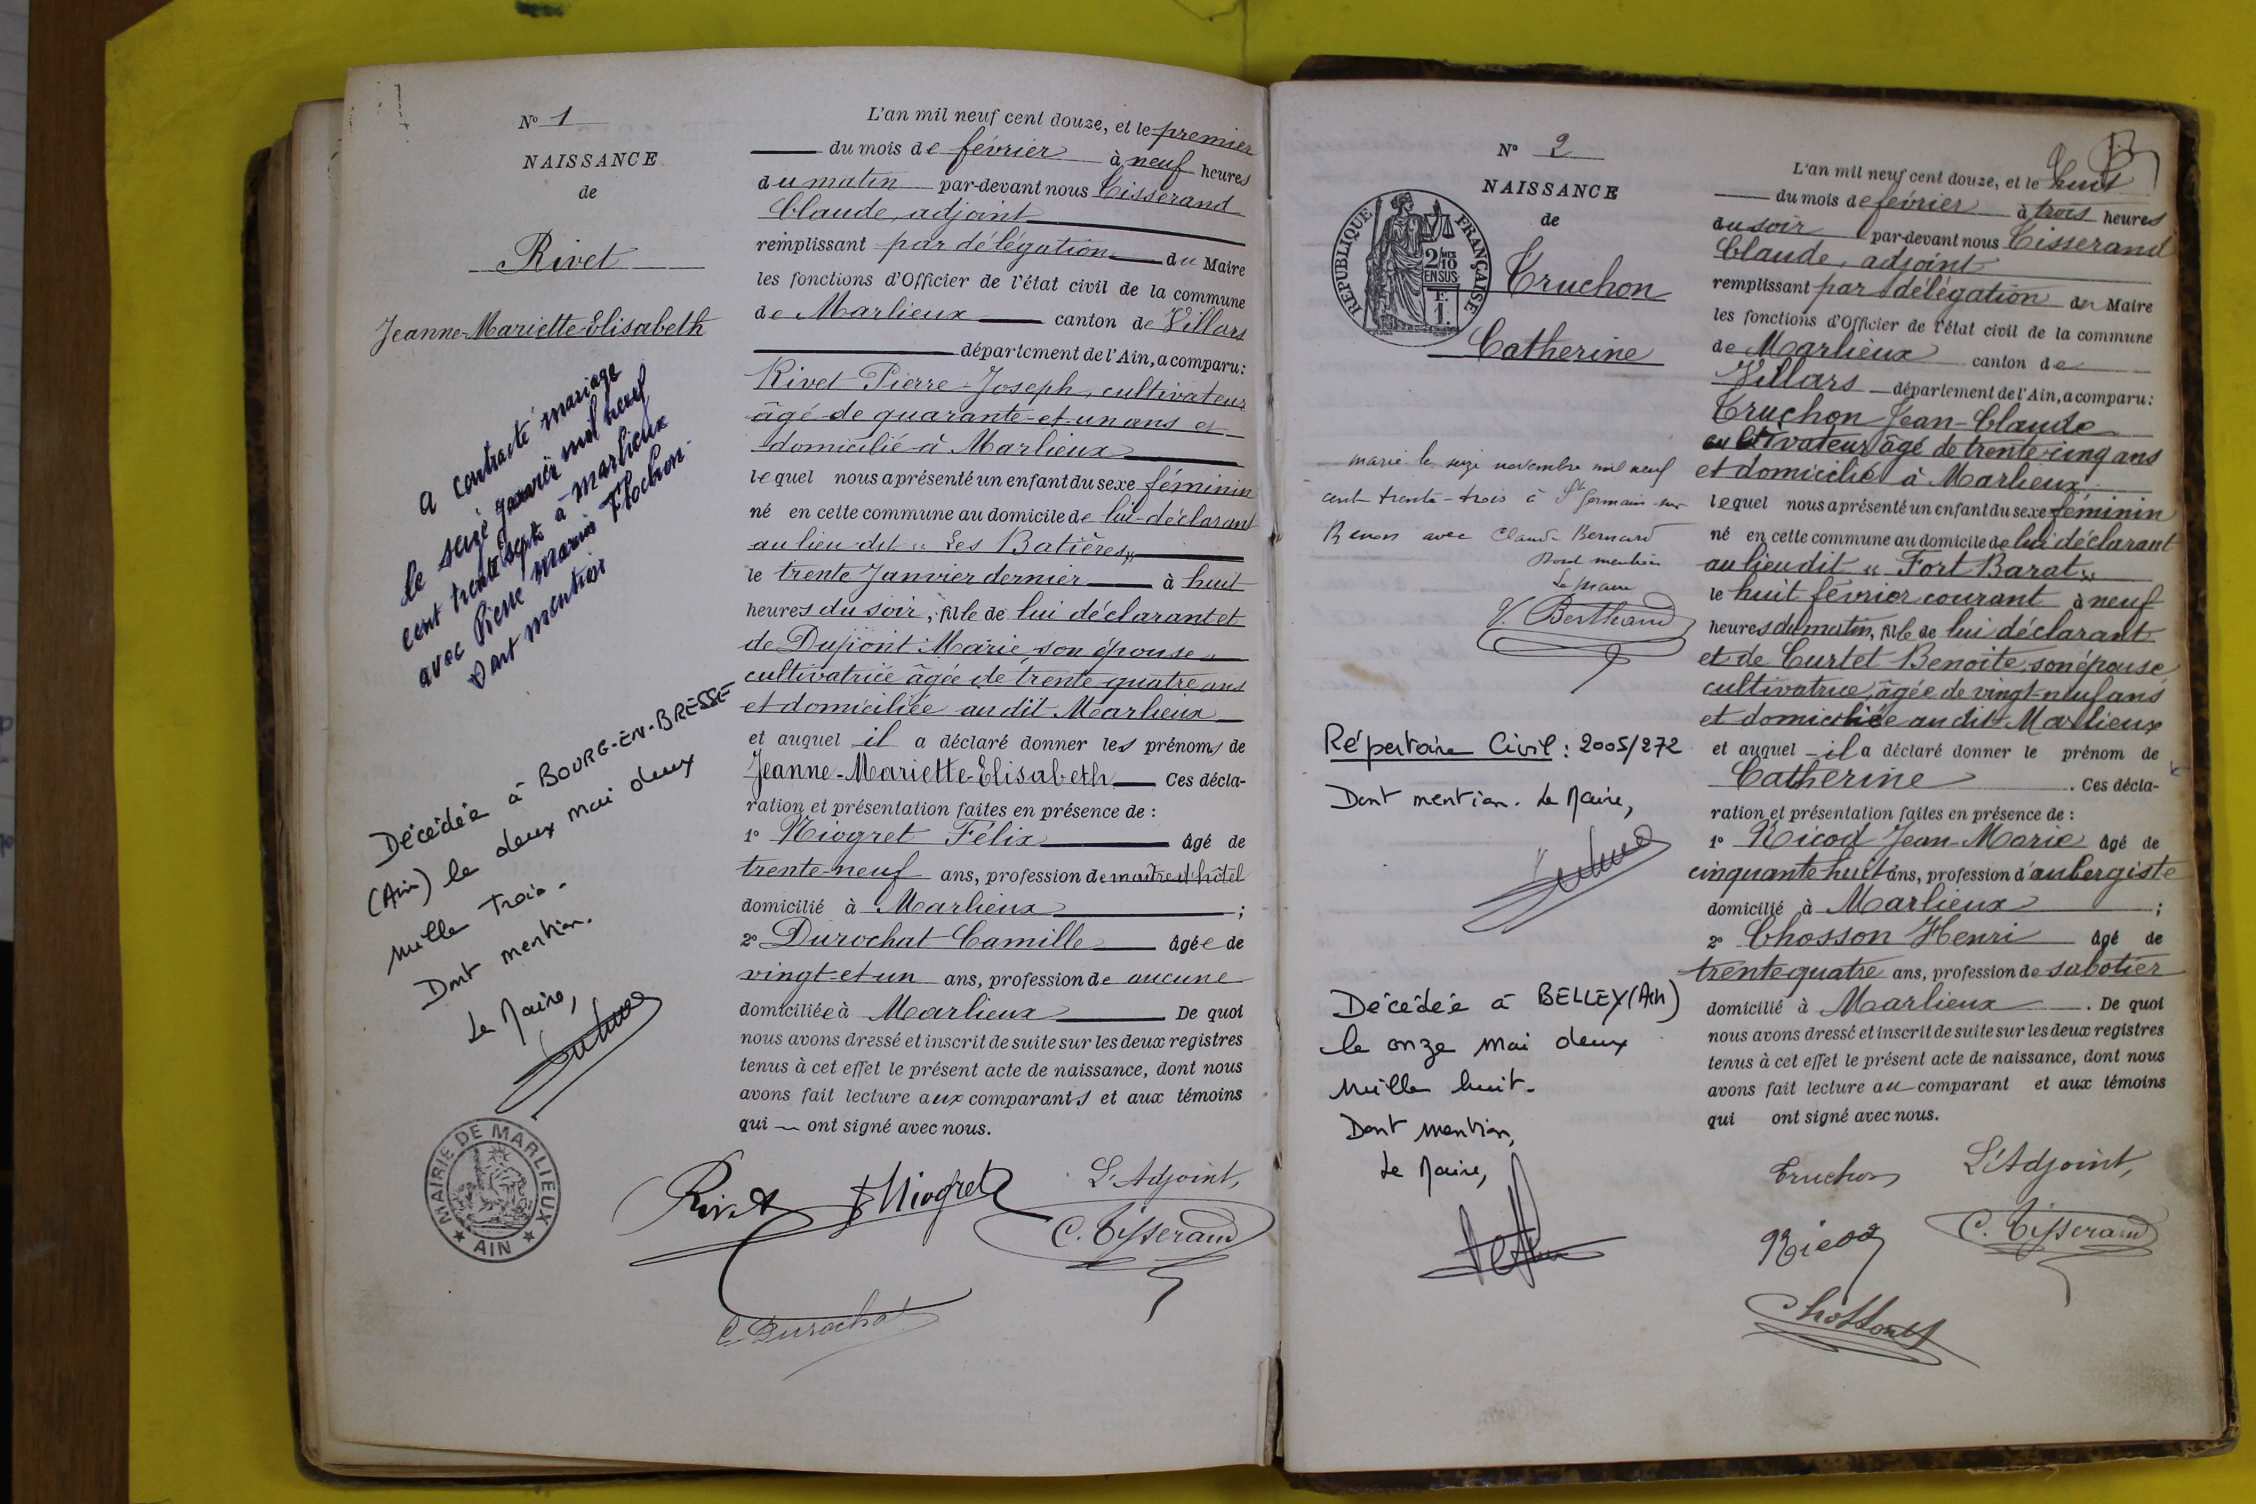 N° 1
NAISSANCE
de
Rivet
Jeanne-Mariette-Elisabeth
a contracté mariage
le seize janvier mil neuf
cent trente sept à Marlieux
avec Pierre Marius Flochon
Dont mention
Décédée à BOURG-EN-BRESSE
(Ain) le deux mai deux
mille trois.
Dont mention.
Le Maire,
MAIRIE DE MARLIEUX
★ AIN ★
L'an mil neuf cent douze, et le premier
du mois de février à neuf heures
du matin par-devant nous Tisserand
Claude, adjoint
remplissant par délégation du Maire
les fonctions d'Officier de l'état civil de la commune
de Marlieux canton de Villars
département de l'Ain, a comparu:
Rivet Pierre-Joseph, cultivateur
âgé de quarante-et-un ans et
domicilié à Marlieux
lequel nous a présenté un enfant du sexe féminin
né en cette commune au domicile de lui-déclarant
au lieu dit « Les Batières »
le trente Janvier dernier à huit
heures du soir, fille de lui déclarant et
de Dupont Marie son épouse
cultivatrice âgée de trente quatre ans
et domiciliée au dit Marlieux
et auquel il a déclaré donner les prénoms de
Jeanne-Mariette-Elisabeth Ces décla-
ration et présentation faites en présence de :
1° Niogret Félix âgé de
trente-neuf ans, profession de maître d'hôtel
domicilié à Marlieux ;
2° Durochat Camille âgée de
vingt-et-un ans, profession de aucune
domiciliée à Marlieux De quoi
nous avons dressé et inscrit de suite sur les deux registres
tenus à cet effet le présent acte de naissance, dont nous
avons fait lecture aux comparants et aux témoins
qui ont signé avec nous.
Rivet F Niogret L'Adjoint,
C. Tisserand
C. Durochat
N° 2
NAISSANCE
de
REPUBLIQUE FRANÇAISE
2/10
EN SUS
F.
1.
Truchon
Catherine
marié le seize novembre mil neuf
cent trente-trois à St Germain-sur
Renon avec Claude Bernard
Dont mention
Le Maire
V. Berthaud
Répertoire Civil : 2005/272
Dont mention. Le Maire,
Décédée à BELLEY (Ain)
le onze mai deux
mille huit.
Dont mention,
Le Maire,
L'an mil neuf cent douze, et le huit
du mois de février à trois heures
du soir par-devant nous Tisserand
Claude, adjoint
remplissant par délégation du Maire
les fonctions d'Officier de l'état civil de la commune
de Marlieux canton de
Villars département de l'Ain, a comparu:
Truchon Jean-Claude
cultivateur âgé de trente-cinq ans
et domicilié à Marlieux
lequel nous a présenté un enfant du sexe féminin
né en cette commune au domicile de lui déclarant
au lieu dit « Fort Barat »
le huit février courant à neuf
heures du matin, fille de lui déclarant
et de Curtet Benoite, son épouse
cultivatrice, âgée de vingt-neuf ans
et domiciliée au dit Marlieux
et auquel il a déclaré donner le prénom de
Catherine . Ces décla-
ration et présentation faites en présence de :
1° Nicod Jean-Marie âgé de
cinquante huit ans, profession d'aubergiste
domicilié à Marlieux ;
2° Chosson Henri âgé de
trente quatre ans, profession de sabotier
domicilié à Marlieux . De quoi
nous avons dressé et inscrit de suite sur les deux registres
tenus à cet effet le présent acte de naissance, dont nous
avons fait lecture au comparant et aux témoins
qui ont signé avec nous.
Truchon L'Adjoint,
Nicod C. Tisserand
Chosson